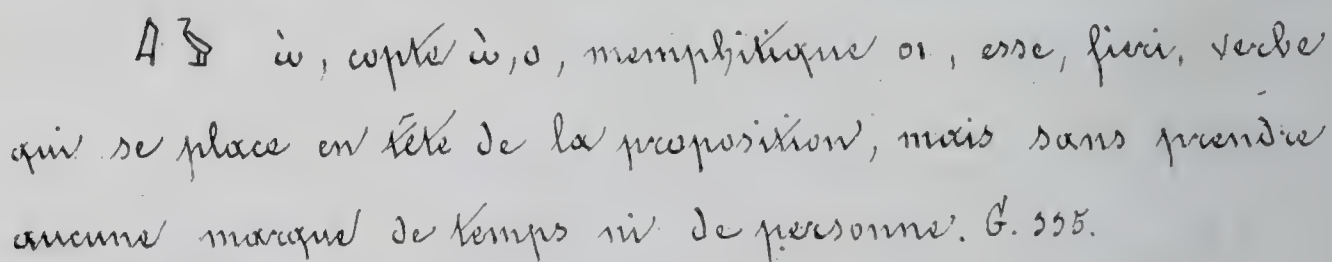 ὠ, copte ὠ, o, memphitique oı, esse, fieri, verbe
qui se place en tête de la proposition, mais sans prendre
aucune marque de temps ni de personne. G. 335.